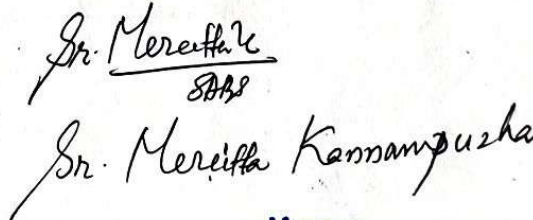 Sr. Mereitta K
SABS
Sr. Mereitta Kannampuzha